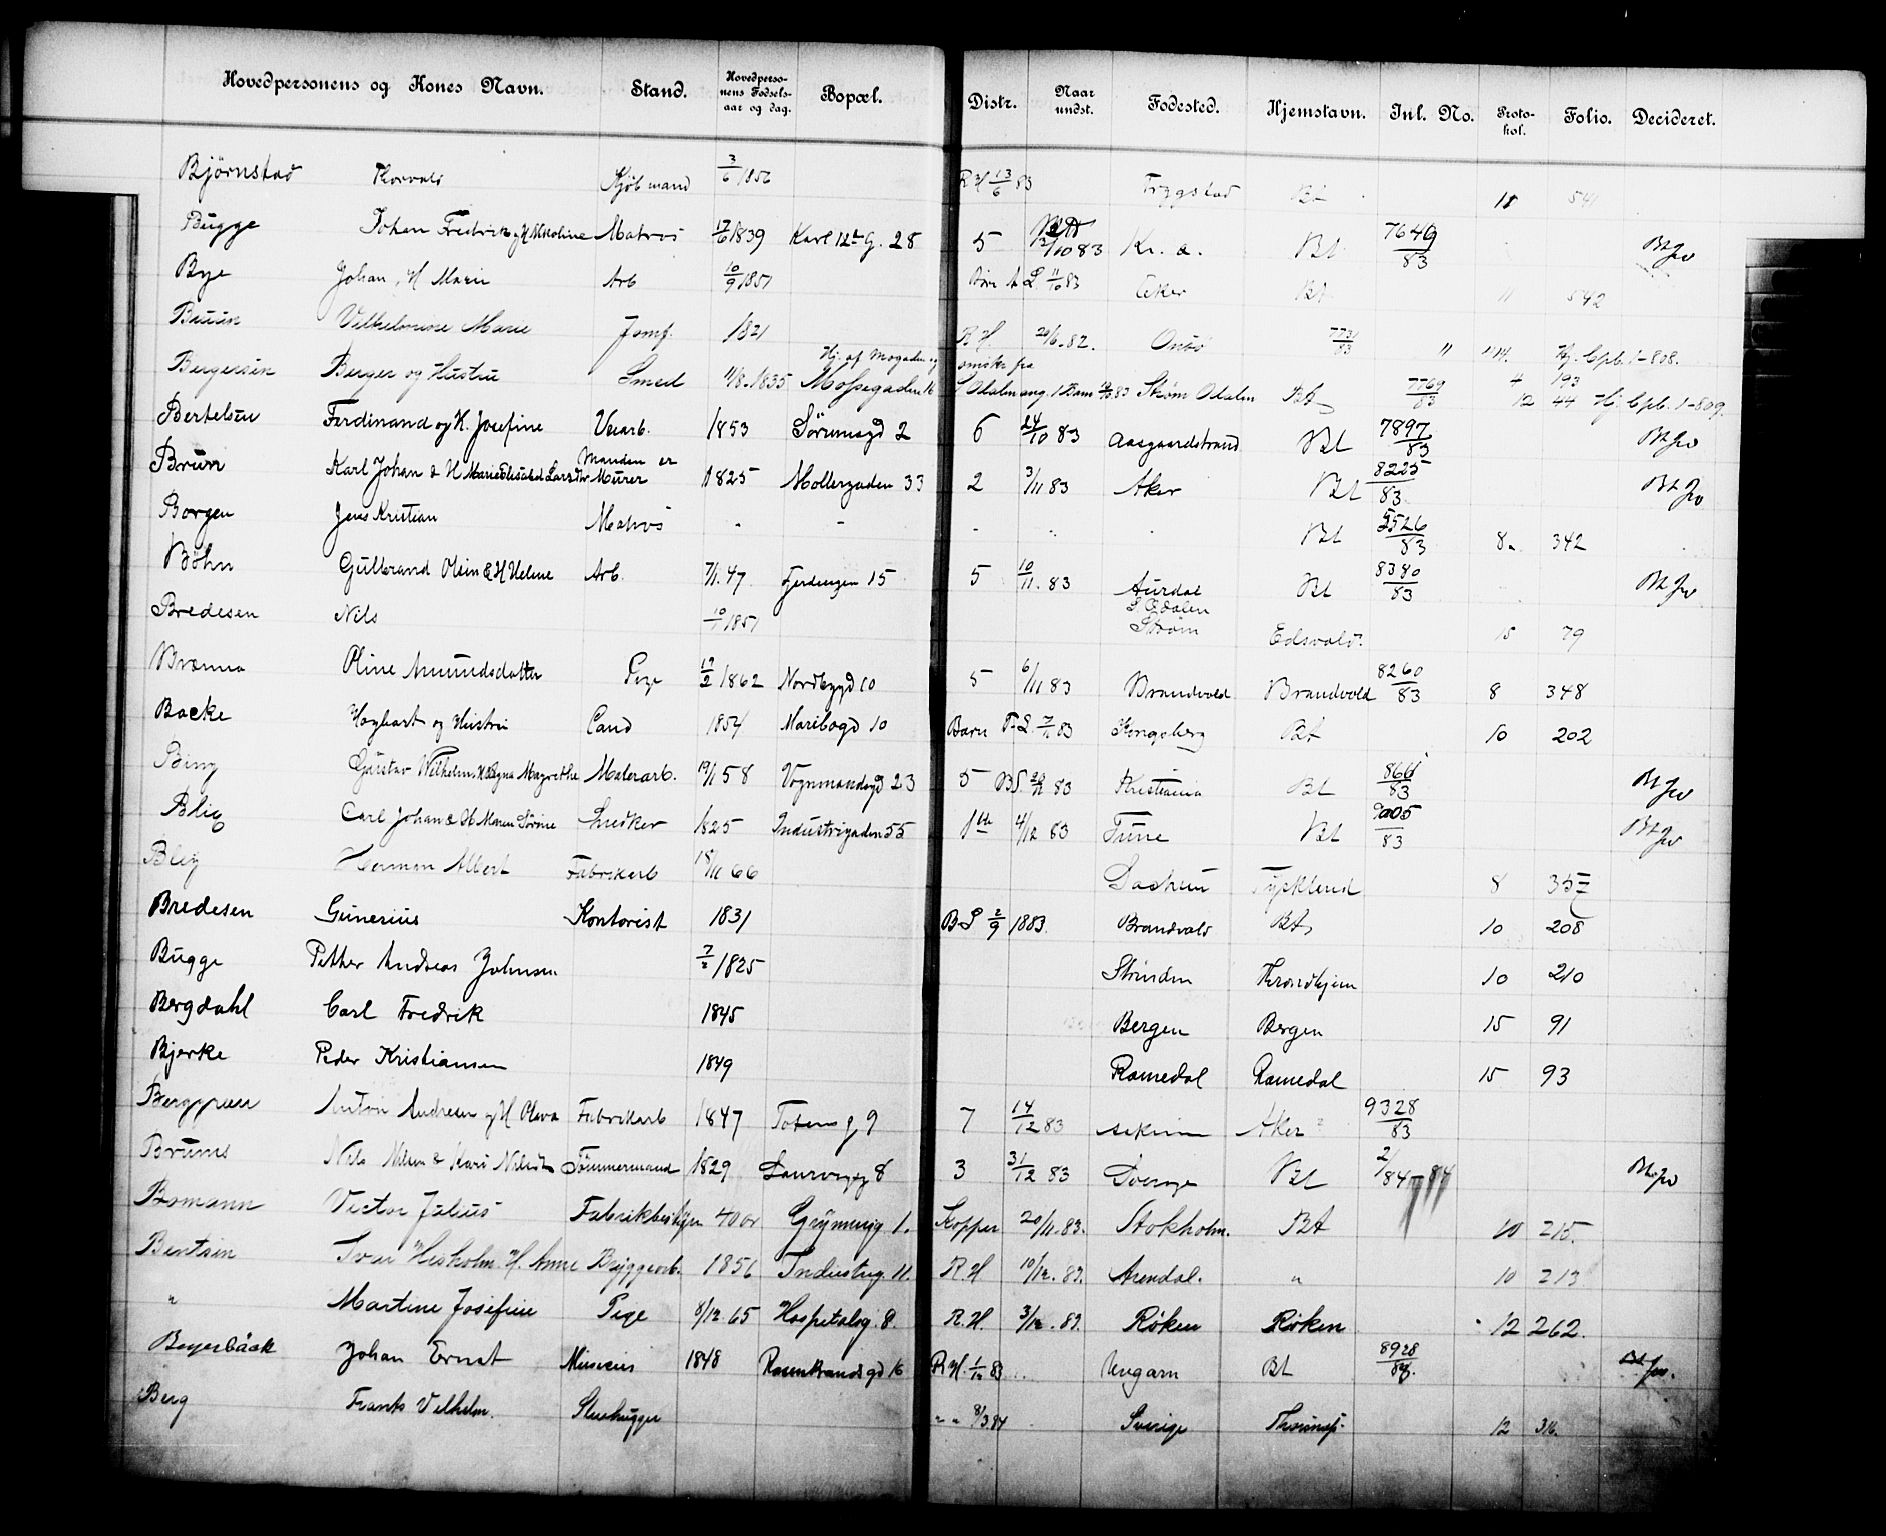 Hovedpersonens og Kones Navn. Stand. Hovedpersonens Fødselsaar og dag. Bopæl. Distr. Naar undst. Fødested. Hjemstavn. Inl. No. Protokol. Folio. Decideret.
Bjørnstad Thorvald Kjøbmand 3/6 1856 R H 13/6 83 Trygstad Bt 11 541
Bugge Johan Fredrik 17/6 1839 Karl 12t G. 28 5 12/10 83 Kr. a. Bt 7649/83 Bt
Bye Johan, H Marie Arb 10/9 1851 11/10 83 Aker Bt 11 542
Bruun Vilhelmine Marie Jomf. 1821 R H. 29/6. 82. Onsø 7731/83 " Hj. Cpb. 1-808.
Bergersen Berger og Hustru Smed 11/8. 1835 Mossegaden 16 Strøm Odalen Bt 7769/83 4 193 12 44 Hj. Cpb. 1-809.
Bertelsen Ferdinand og H. Josefine Verarb. 1853 Sørumsgd 2 6 24/10 83 Aasgaardstrand Bt 7897/83 Bt
Brun Karl Johan & H Marie Larsdtr Manden er Murer 1825 Møllergaden 33 2 3/11 83 Aker Bt 8225/83 Bt
Borgen Jens Kristian Matros - - - Bt 5526/83 8. 342
Bøhn Gulbrand Olsen & H Helene Arb. 7/1. 47. Fjerdingen 15 5 10/11. 83 Aurdal Bt 8380/83 Bt
Bredesen Nils 10/1 1851 S. Odalen Strøm Edsvold. 15 79
Brænna Oline Amundsdatter Pige 17/2 1862 Nordbygd 10 5 6/11 83 Brandvold Brandvold 8260/83 8 348
Backe Hagbart og Hustru Cand 1854 Maribogd 10 Barn F. S. 7/11 83 Kongsberg Bt 10 202
Bing Gustav Wilhelm Magrethe Malerarb. 19/1 58 Vognmandsgd 23 5 83 Kristiania Bt 8661/83 Bt
Blix Carl Johan & H Maren Sørine Snedker 1825 Industrigaden 55 1ste 4/12 83 Tune Bt 9005/83 Bt
Bley Herman Albert Fabrikarb 18/11 66 Tyskland 8 355
Bredesen Gunerius Kontorist 1831 B S 2/9 1883. Brandvold Bt 10 208
Bugge Petter Andreas Johnsen 7/2 1825 Strinden Throndhjem 10 210
Bergdahl Carl Fredrik 1845 Bergen Bergen 15 91
Bjerke Peder Kristiansen 1849 Romedal Romedal 15 93
Berggreen Anton Andresen og H Olava Fabrikarb 1847 Totens g 9 7 14/12 83 Aker 9328/83
Bruns Nils Nilsen & Kari Nilsdtr Tømmermand 1829 Laurvigg 8 3 31/12 83 Sverige Bt 2/84 84 Bt
Bomann Victor Julius Fabrikbestyrer 40 aar Grønnegg 1. Kopper 20/11. 83. Stokholm. Bt 10 215.
Bentsen Ivar Hesholm. H. Anne Bryggearb. 1856 Industrig. 11. R. H 10/12. 83. Arendal. " 10 213
" Martine Josefine Pige 8/12. 65 Hospitalsg. 8. R. H. 3/12. 83. Røken Røken 12 262.
Beyerbäck Johan Ernst Musicus 1848 Rosenkrandsgd 16 R. H. 1/12 83 Ungarn Bt 8928/83.
Berg Frants Vilhelm. Stenhugger " " 8/3 84 Sverige 12 316.